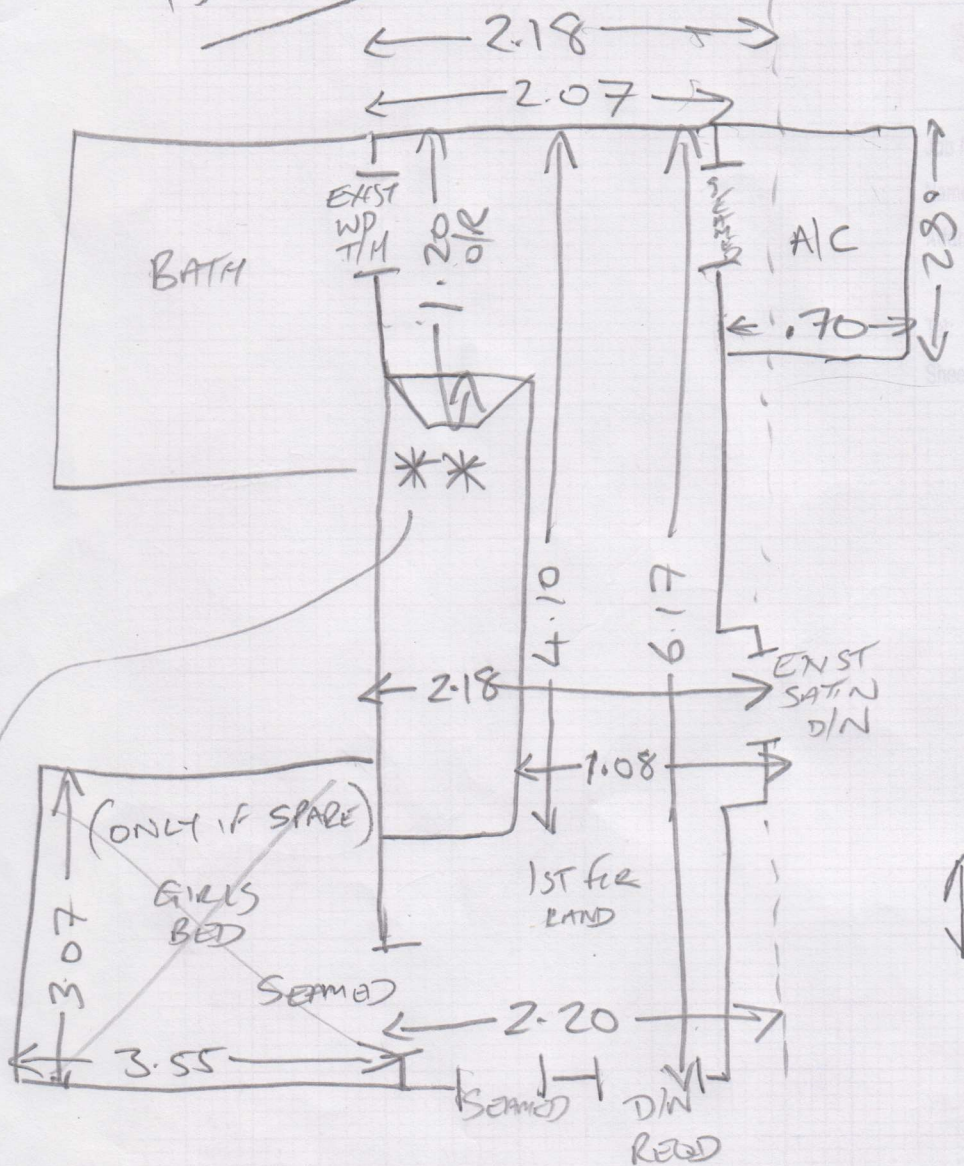 2.18
2.07
BATH
EXIST
WP
T/H
1.20
O/R
A/C
.89
.70
**
4.10
6.17
2.18
EXIST
SATIN
D/N
1.08
(ONLY IF SPARE)
GIRLS
BED
3.07
SEAMED
1ST FLR
LAND
2.20
3.55
SEAMED
D/N
REQD